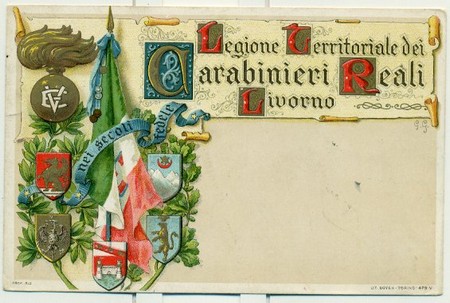 Legione Territoriale dei
Carabinieri Reali
Livorno
nei secoli fedele